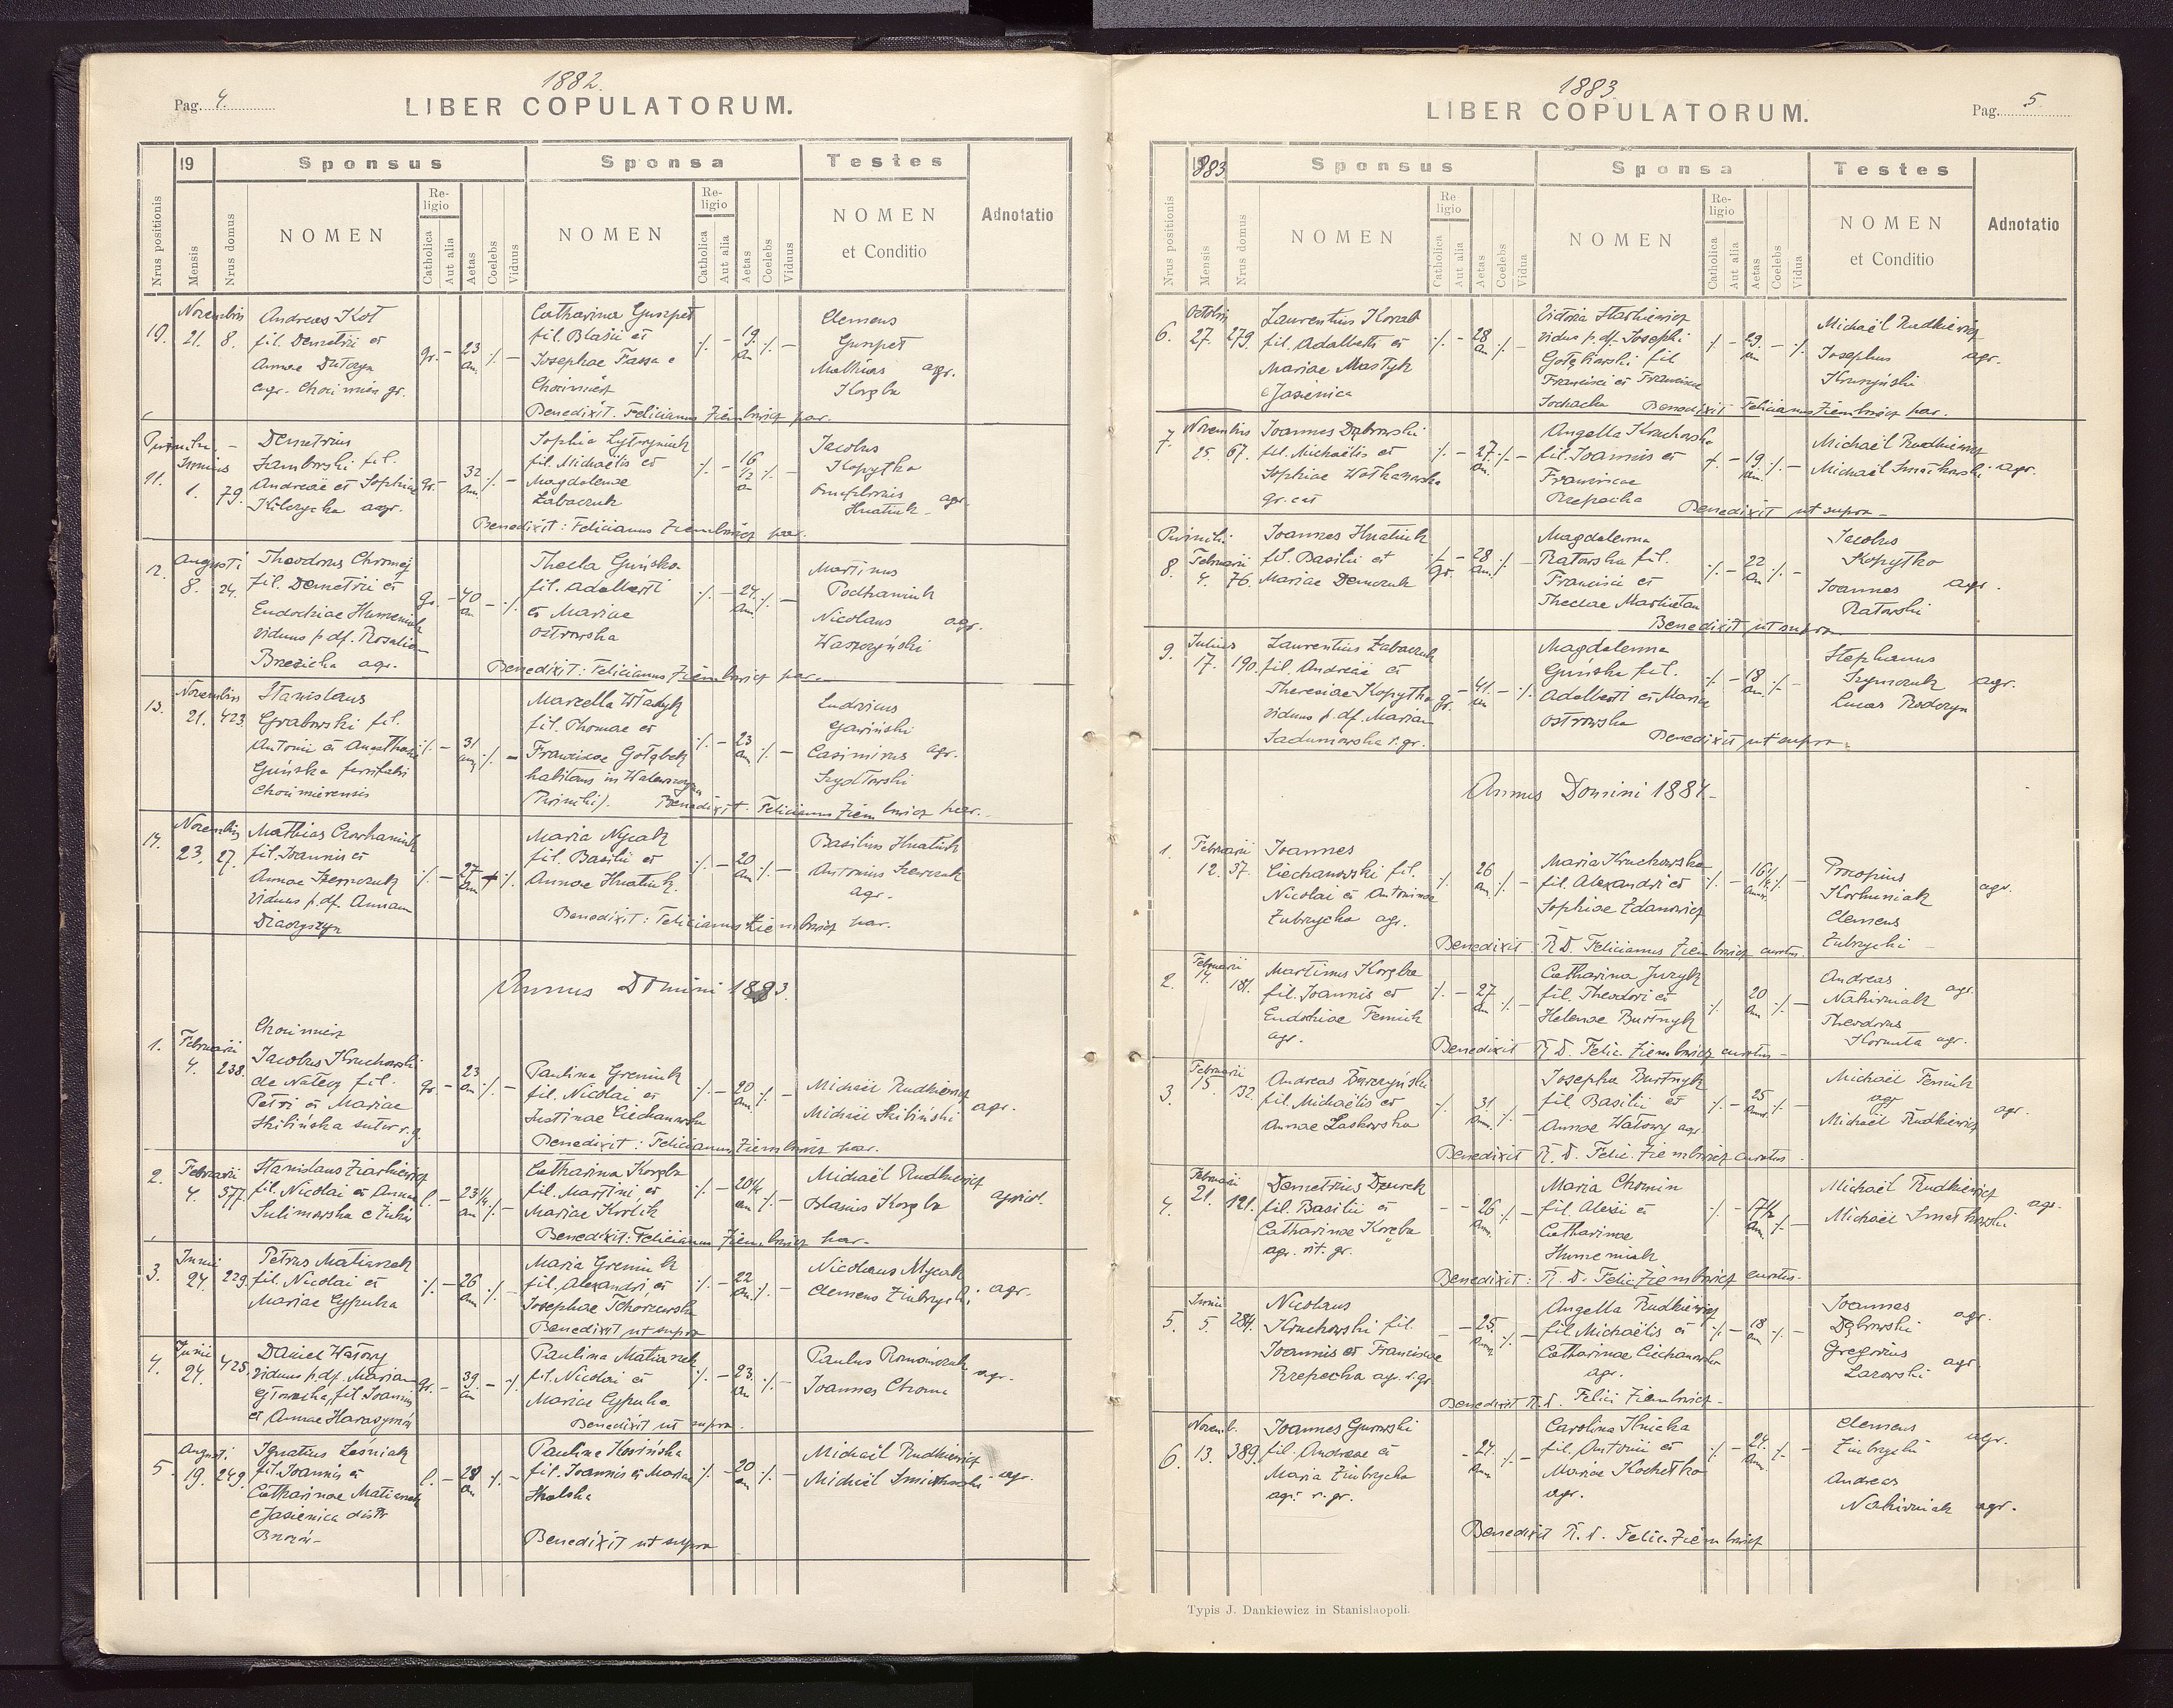 1882.
Pag. 4.
LIBER COPULATORUM.
Nrus positionis
19
Mensis
Nrus domus
Sponsus
NOMEN
Religio
Catholica
Aut alia
Aetas
Coelebs
Viduus
Sponsa
NOMEN
Religio
Catholica
Aut alia
Aetas
Coelebs
Viduus
Testes
NOMEN
et Conditio
Adnotatio
10. Novembris 21. 8.
Andreas Kot
fil. Demetrii et
Annae
agr. gr.
gr. - 23 an. ·/. -
Catharina Gunpet
fil. Blasii et
Josephae
·/. - 19. an. ·/. -
Clemens
Gunpet
Mathias agr.
Korzba
Benedixit: Felicianus Ziembowicz par.
11. Junius 1. 79.
Demetrius
Zamborski fil.
Andreae et Sophiae
agr.
gr. - 32 an. ·/. -
Sophia
fil. Michaëlis et
Magdalenae
Łabaczuk
·/. - 16 1/2 a ·/. -
Jacobus
Kopytko
Hnatiuk agr.
Benedixit: Felicianus Ziembowicz par.
12. Augusti 8. 24.
Theodorus
fil. Demetrii et
Eudochiae Humeniuk
viduus p. df.
agr.
gr. - 40 an - ·/.
Thecla Guńska
fil. Adalberti
et Mariae
Ostrowska
·/. - 24. an. ·/. -
Martinus
Podhaniuk
Nicolaus agr.
Waszczyński
Benedixit: Felicianus Ziembowicz par.
13. Novembris 21. 423.
Stanislaus
Grabowski fil.
Antonii et
Guńska
·/. - 31 ·/. -
Marcella Władyk
fil. Thomae et
Franciscae Gołąbek
habitans in
·/. - 23 an ·/. -
Ludovicus
Gawiński
Casimirus agr.
Szydłowski
Benedixit: Felicianus Ziembowicz par.
14. Novembris 23. 27.
Mathias
fil. Joannis et
Annae
viduus p. df. Annam
·/. - 27 an ·/.
Maria Mycak
fil. Basilii et
Annae Hnatiuk.
·/. - 20 an ·/. -
Basilius Hnatiuk
Antonius Szewczuk
agr.
Benedixit: Felicianus Ziembowicz par.
Annus Domini 1883.
1. Februarii 4. 238.
Jacobus Kruchowski
fil.
Petri et Mariae
gr. - 23 an ·/. -
Paulina Greniuk
fil. Nicolai et
Justinae Ciechanowska
·/. - 20 an. ·/. -
Michaël Rudkiewicz
Michaël Skibiński agr.
Benedixit: Felicianus Ziembowicz par.
2. Februarii 4. 377.
Stanislaus Ziarkiewicz
fil. Nicolai et Annae
l. - 23 1/4 an ·/. -
Catharina Korzba
fil. Martini et
Mariae
·/. - 20 1/4 an ·/. -
Michaël Rudkiewicz
Blasius Korzba
agricol.
Benedixit: Felicianus Ziembowicz par.
3. Junii 24. 229.
Petrus Matiaszek
fil. Nicolai et
Mariae Cypuka
·/. - 26 an ·/. -
Maria Greniuk
fil. Alexandri et
Josephae Tchorzewska
·/. - 22 an. ·/. -
Nicolaus Mycak
Clemens Zubrycki agr.
Benedixit ut supra
4. Junii 24. 425.
Daniel Watowy
viduus p. df. Mariam
fil. Joannis
et Annae
gr. - 39. an - ·/.
Paulina Matiaszek
fil. Nicolai et
Mariae Cypuka
·/. - 23. an ·/. -
Paulus Romańczuk
Joannes Chroma agr.
Benedixit ut supra.
5. Augusti 19. 249.
Ignatius Leśniak
fil. Joannis et
Catharinae Matiaszek
e Jasienica distr
l. - 28 an ·/. -
Paulina Kosińska
fil. Joannis et Mariae
·/. - 20 an ·/. -
Michaël Rudkiewicz
Michaël agr.
Benedixit ut supra
1883
LIBER COPULATORUM.
Pag. 5
Nrus positionis
1883
Mensis
Nrus domus
Sponsus
NOMEN
Religio
Catholica
Aut alia
Aetas
Coelebs
Vidua
Sponsa
NOMEN
Religio
Catholica
Aut alia
Aetas
Coelebs
Vidua
Testes
NOMEN
et Conditio
Adnotatio
6. Octobris 27. 279.
Laurentius
fil. Adalberti et
Mariae Mastyk
e Jasienica
·/. - 28 an ·/. -
Victoria
vidua p. df. Josephi
fil
Francisci et Franciscae
Sochacka
·/. - 29 an - ·/.
Michaël Rudkiewicz
Josephus agr.
Kruszyński
Benedixit Felicianus Ziembowicz par.
7. Novembris 25. 67.
Joannes Dąbrowski
fil. Michaëlis et
Sophiae
gr. cat
·/. - 27 an. ·/. -
Angella Kruchowska
fil. Joannis et
Franciscae
Rzepecka
·/. - 19. an. ·/. -
Michaël Rudkiewicz
Michaël agr.
Benedixit ut supra -
8. Februarii 4. 76.
Joannes Hnatiuk
fil. Basilii et
Mariae Demczuk
·/. gr. - 28 an. ·/. -
Magdalenna
Ratowska fil.
Francisci et
Theclae
·/. - 22 an ·/. -
Jacobus
Kopytko
Joannes agr.
Ratowski
Benedixit ut supra
9. Julius 17. 190.
Laurentius Łabaczuk
fil. Andreae et
Theresiae Kopytko
viduus p. df. Mariam
r. gr.
gr. - 41. an - ·/.
Magdalenna
Guńska fil.
Adalberti et Mariae
Ostrowska
·/. - 18 an. ·/. -
Stephanus
Szymczuk agr.
Lucas
Benedixit ut supra.
Annus Domini 1884.
1. Februarii 12. 37.
Joannes
Ciechanowski fil.
Nicolai et Antoninae
Zubrycka agr.
·/. 26 an. ·/. -
Maria Kruchowska
fil. Alexandri et
Sophiae Zdanowicz
·/. - 16 1/4 ·/. -
Procopius
Korhuniak agr.
Clemens
Zubrycki -
Benedixit: R. D. Felicianus Ziembowicz curatus.
2. Februarii 14. 181.
Martinus Korzba
fil. Joannis et
Eudochiae Feniuk
agr.
·/. - 27 an ·/. -
Catharina Juzyk
fil. Theodori et
Helenae Burtnyk
·/. 20 an ·/. -
Andreas agr.
Nahirniak
Theodorus
agr.
Benedixit R. D. Felic. Ziembowicz curatus -
3. Februarii 15. 132.
Andreas
fil. Michaëlis et
Annae Laskowska
·/. 31. ann. ·/. -
Josepha Burtnyk
fil. Basilii et
Annae Watowy agr
·/. - 25 ann. ·/. -
Michaël Feniuk
agr
Michaël Rudkiewicz agr.
Benedixit R. D. Felic. Ziembowicz curatus.
4. Februarii 21. 121.
Demetrius
fil. Basilii et
Catharinae Korzba
agr. rit. gr.
- - 26 ann. ·/. -
Maria Chomin
fil. Alexi et
Catharinae
Humeniuk
·/. - 17 1/2 an. ·/. -
Michaël Rudkiewicz
Michaël agr.
Benedixit: R. D. Felic Ziembowicz curatus.
5. Junii 5. 284.
Nicolaus
Kruchowski fil
Joannis et Franciscae
Rzepecka agr. r. gr.
- - 25. ·/. -
Angella Rudkiewicz
fil. Michaëlis et
Catharinae Ciechanowska
agr.
·/. - 18 an ·/. -
Joannes
Dąbrowski agr.
Gregorius
Lazowski agr.
Benedixit R. D. Felici Ziembowicz -
6. Novemb. 13. 389.
Joannes Gurowski
fil. Andreae et
Maria Zubrycka
agr. r. gr.
- 24. an. ·/. -
Carolina Ilnicka
fil. Antonii et
Mariae
agr.
·/. - 24. ann. ·/. -
Clemens
Zubrycki agr.
Andreas
Nahirniak agr.
Benedixit R. D. Felic. Ziembowicz
Typis J. Dankiewicz in Stanislaopoli.